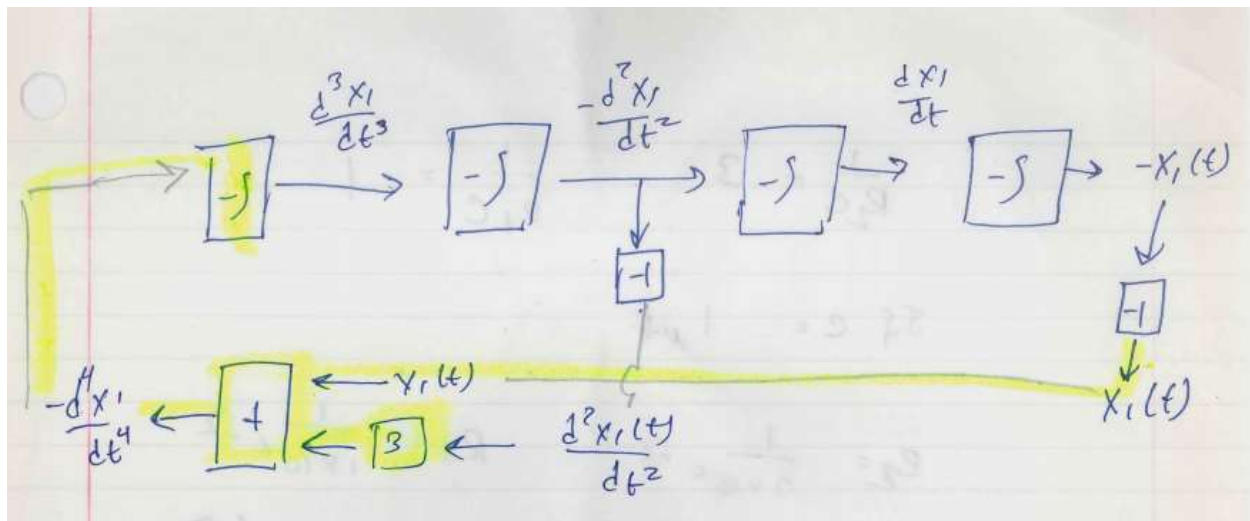 d³x₁/dt³
-d²x₁/dt²
dx₁/dt
-∫
-∫
-∫
-∫
-x₁(t)
-1
-1
x₁(t)
x₁(t)
-d⁴x₁/dt⁴
+
3
d²x₁(t)/dt²